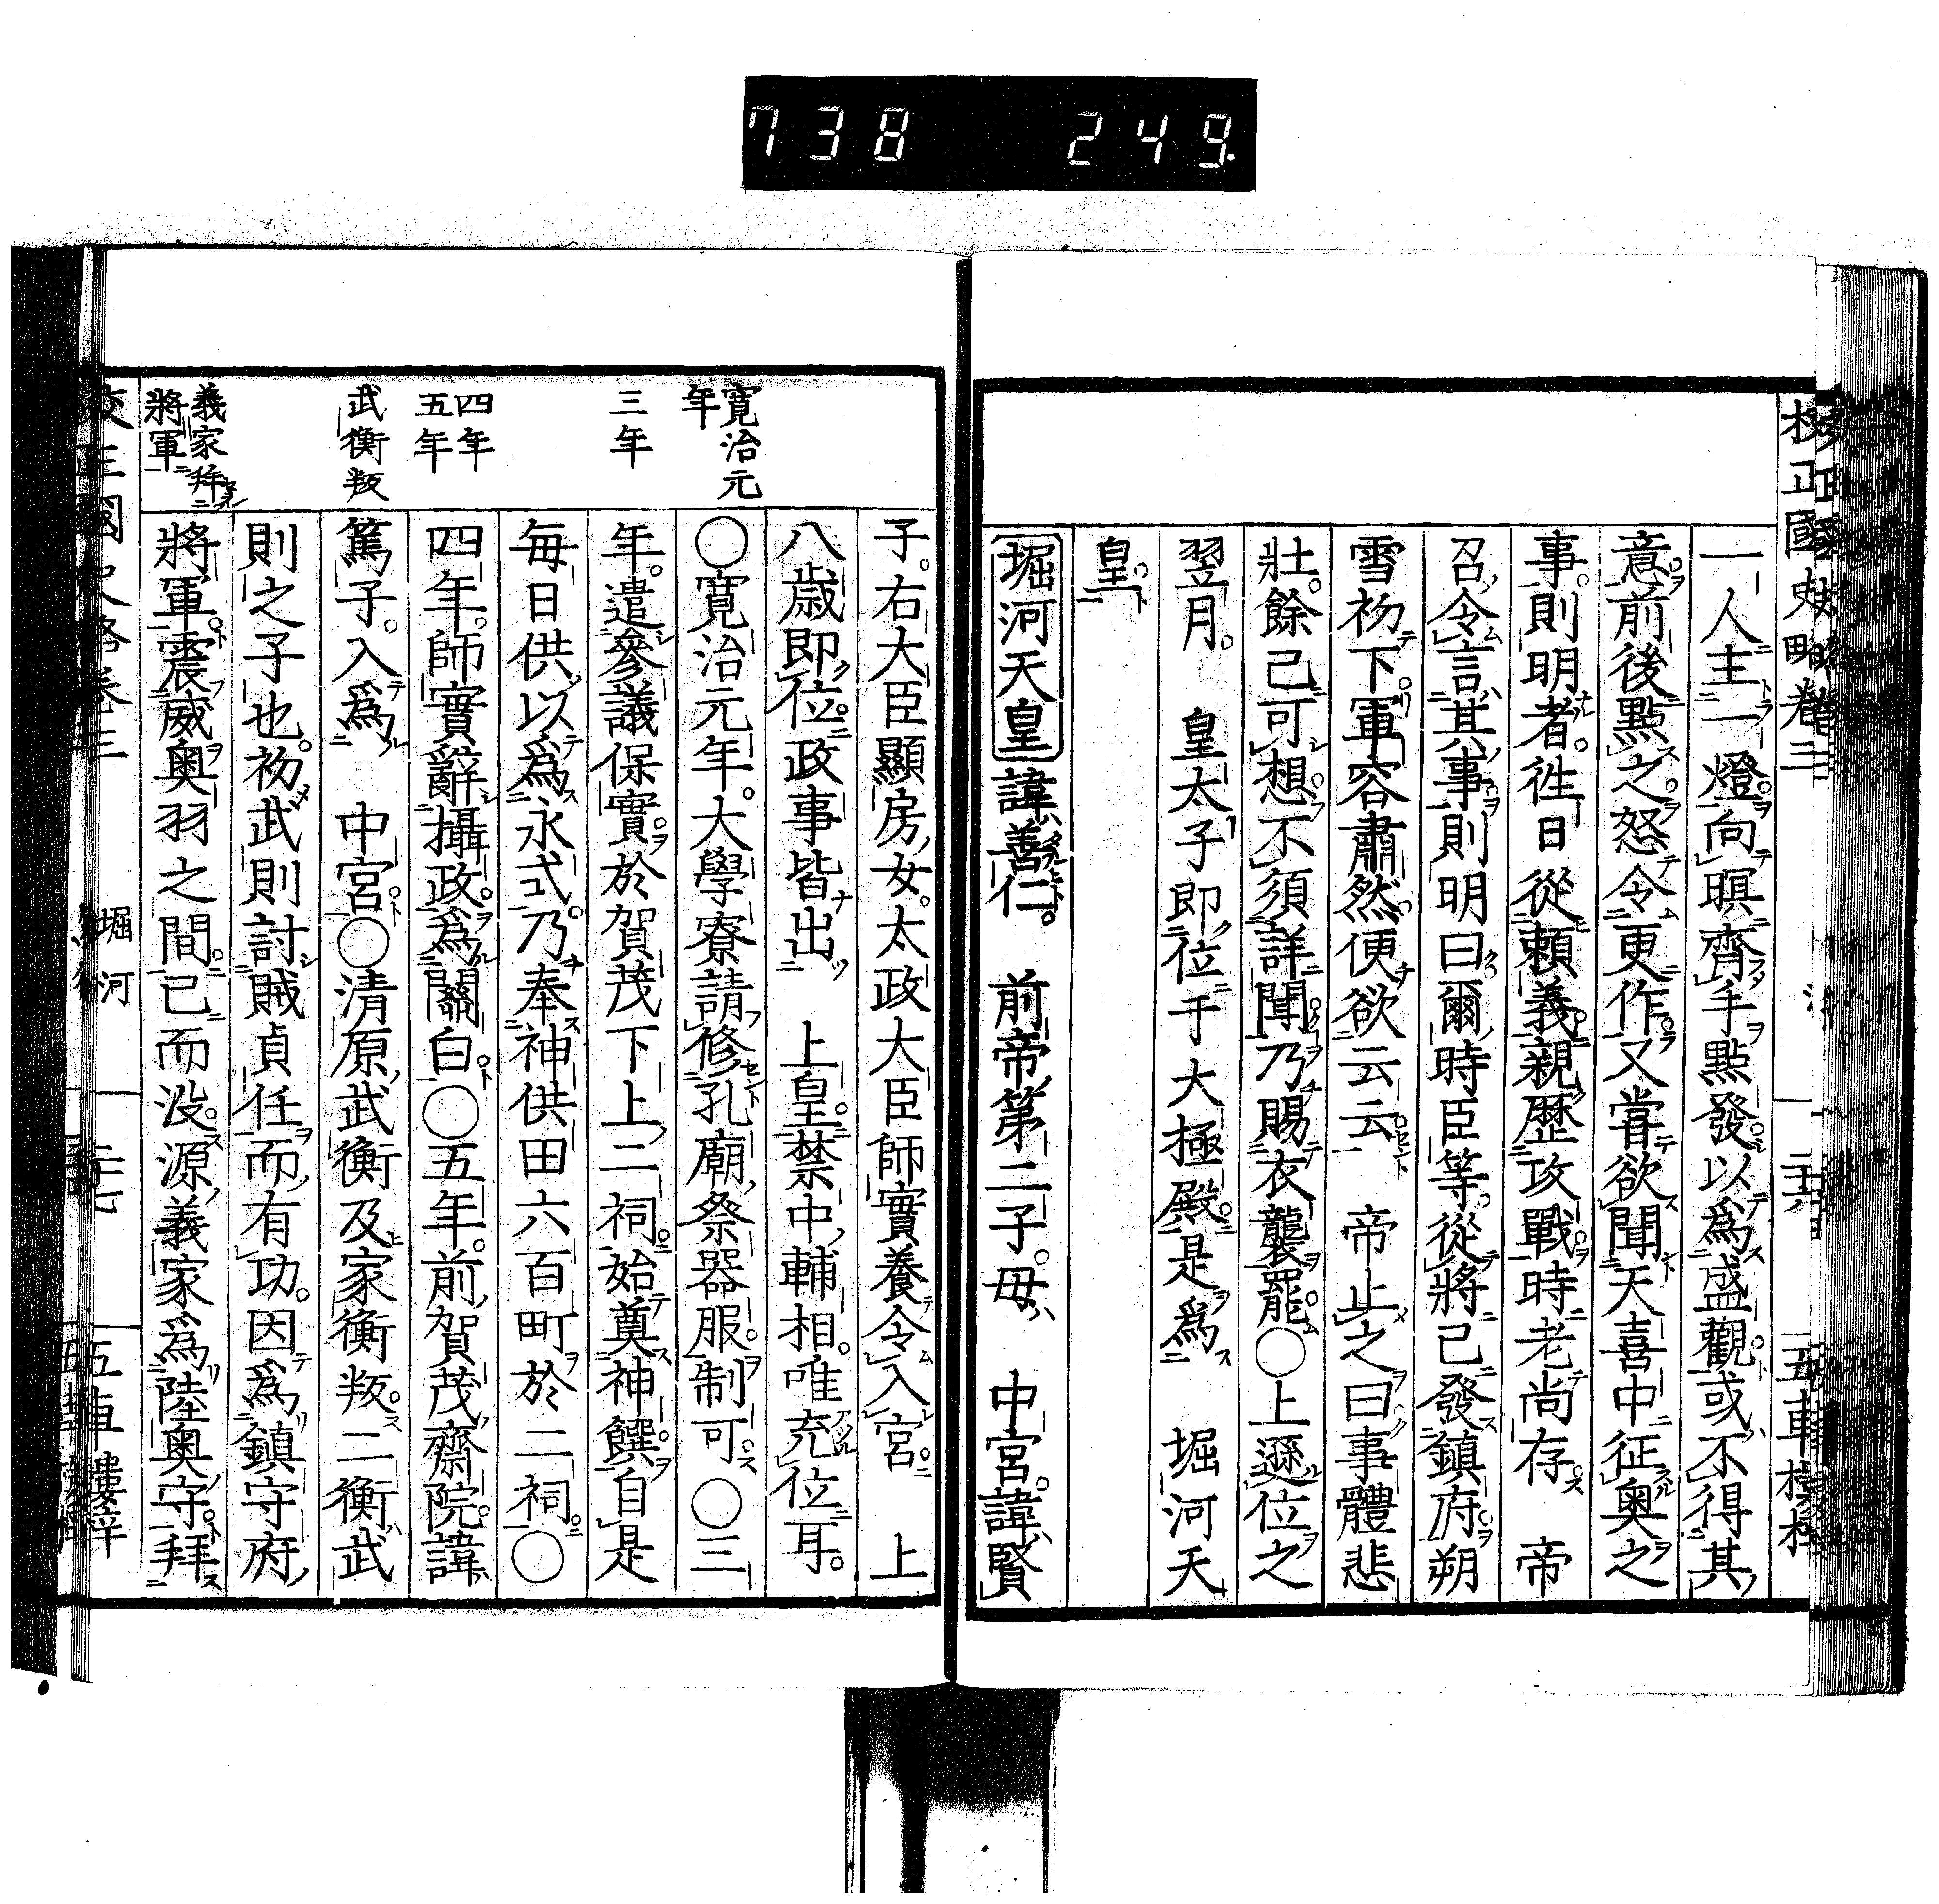 738 249.
校正國史略卷三
一人主一燈向暝齊手點發以爲盛觀或不得其
意前後點之怒令更作又嘗欲聞天喜中征奧之
事則明者往日從賴義親歷攻戰時老尚存 帝
召令言其事則明曰爾時臣等從將己發鎮府朔
雪初下軍容肅然便欲云云 帝止之曰事體悲
壯餘已可想不須詳聞乃賜衣襲罷○上遜位之
翌月 皇太子即位于大極殿是爲 堀河天
皇
堀河天皇諱善仁 前帝第二子母 中宮諱賢
子右大臣顯房女太政大臣師實養令入宮 上
八歲即位政事皆出 上皇禁中輔相唯充位耳
○寬治元年大學寮請修孔廟祭器服制可○三
年遣參議保實於賀茂下上二祠始奠神饌自是
每日供以爲永式乃奉神供田六百町於二祠○
四年師實辭攝政爲關白○五年前賀茂齋院諱
篤子入爲 中宮○清原武衡及家衡叛二衡武
則之子也初武則討賊貞任而有功因爲鎮守府
將軍震威奧羽之間已而沒源義家爲陸奧守拜
寬治元年
三年
四年
五年
武衡叛
義家拜將軍
堀河
五車樓